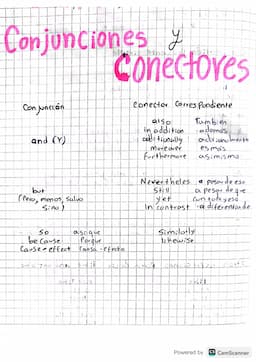 Conjunciones y
Conectores
Conjunción
Conector Correspondiente
and (Y)
also También
in addition además
aditionally adicionalmente
moreover es más
furthermore asimismo
but
(Pero, menos, salvo
sino)
Nevertheles a pesar de eso
Still a pesar de que
yet con todo y eso
In contrast a diferencia de
so asi que
because Porque
Cause + effect Causa-efecto
Similatly
likewise
Powered by CS CamScanner